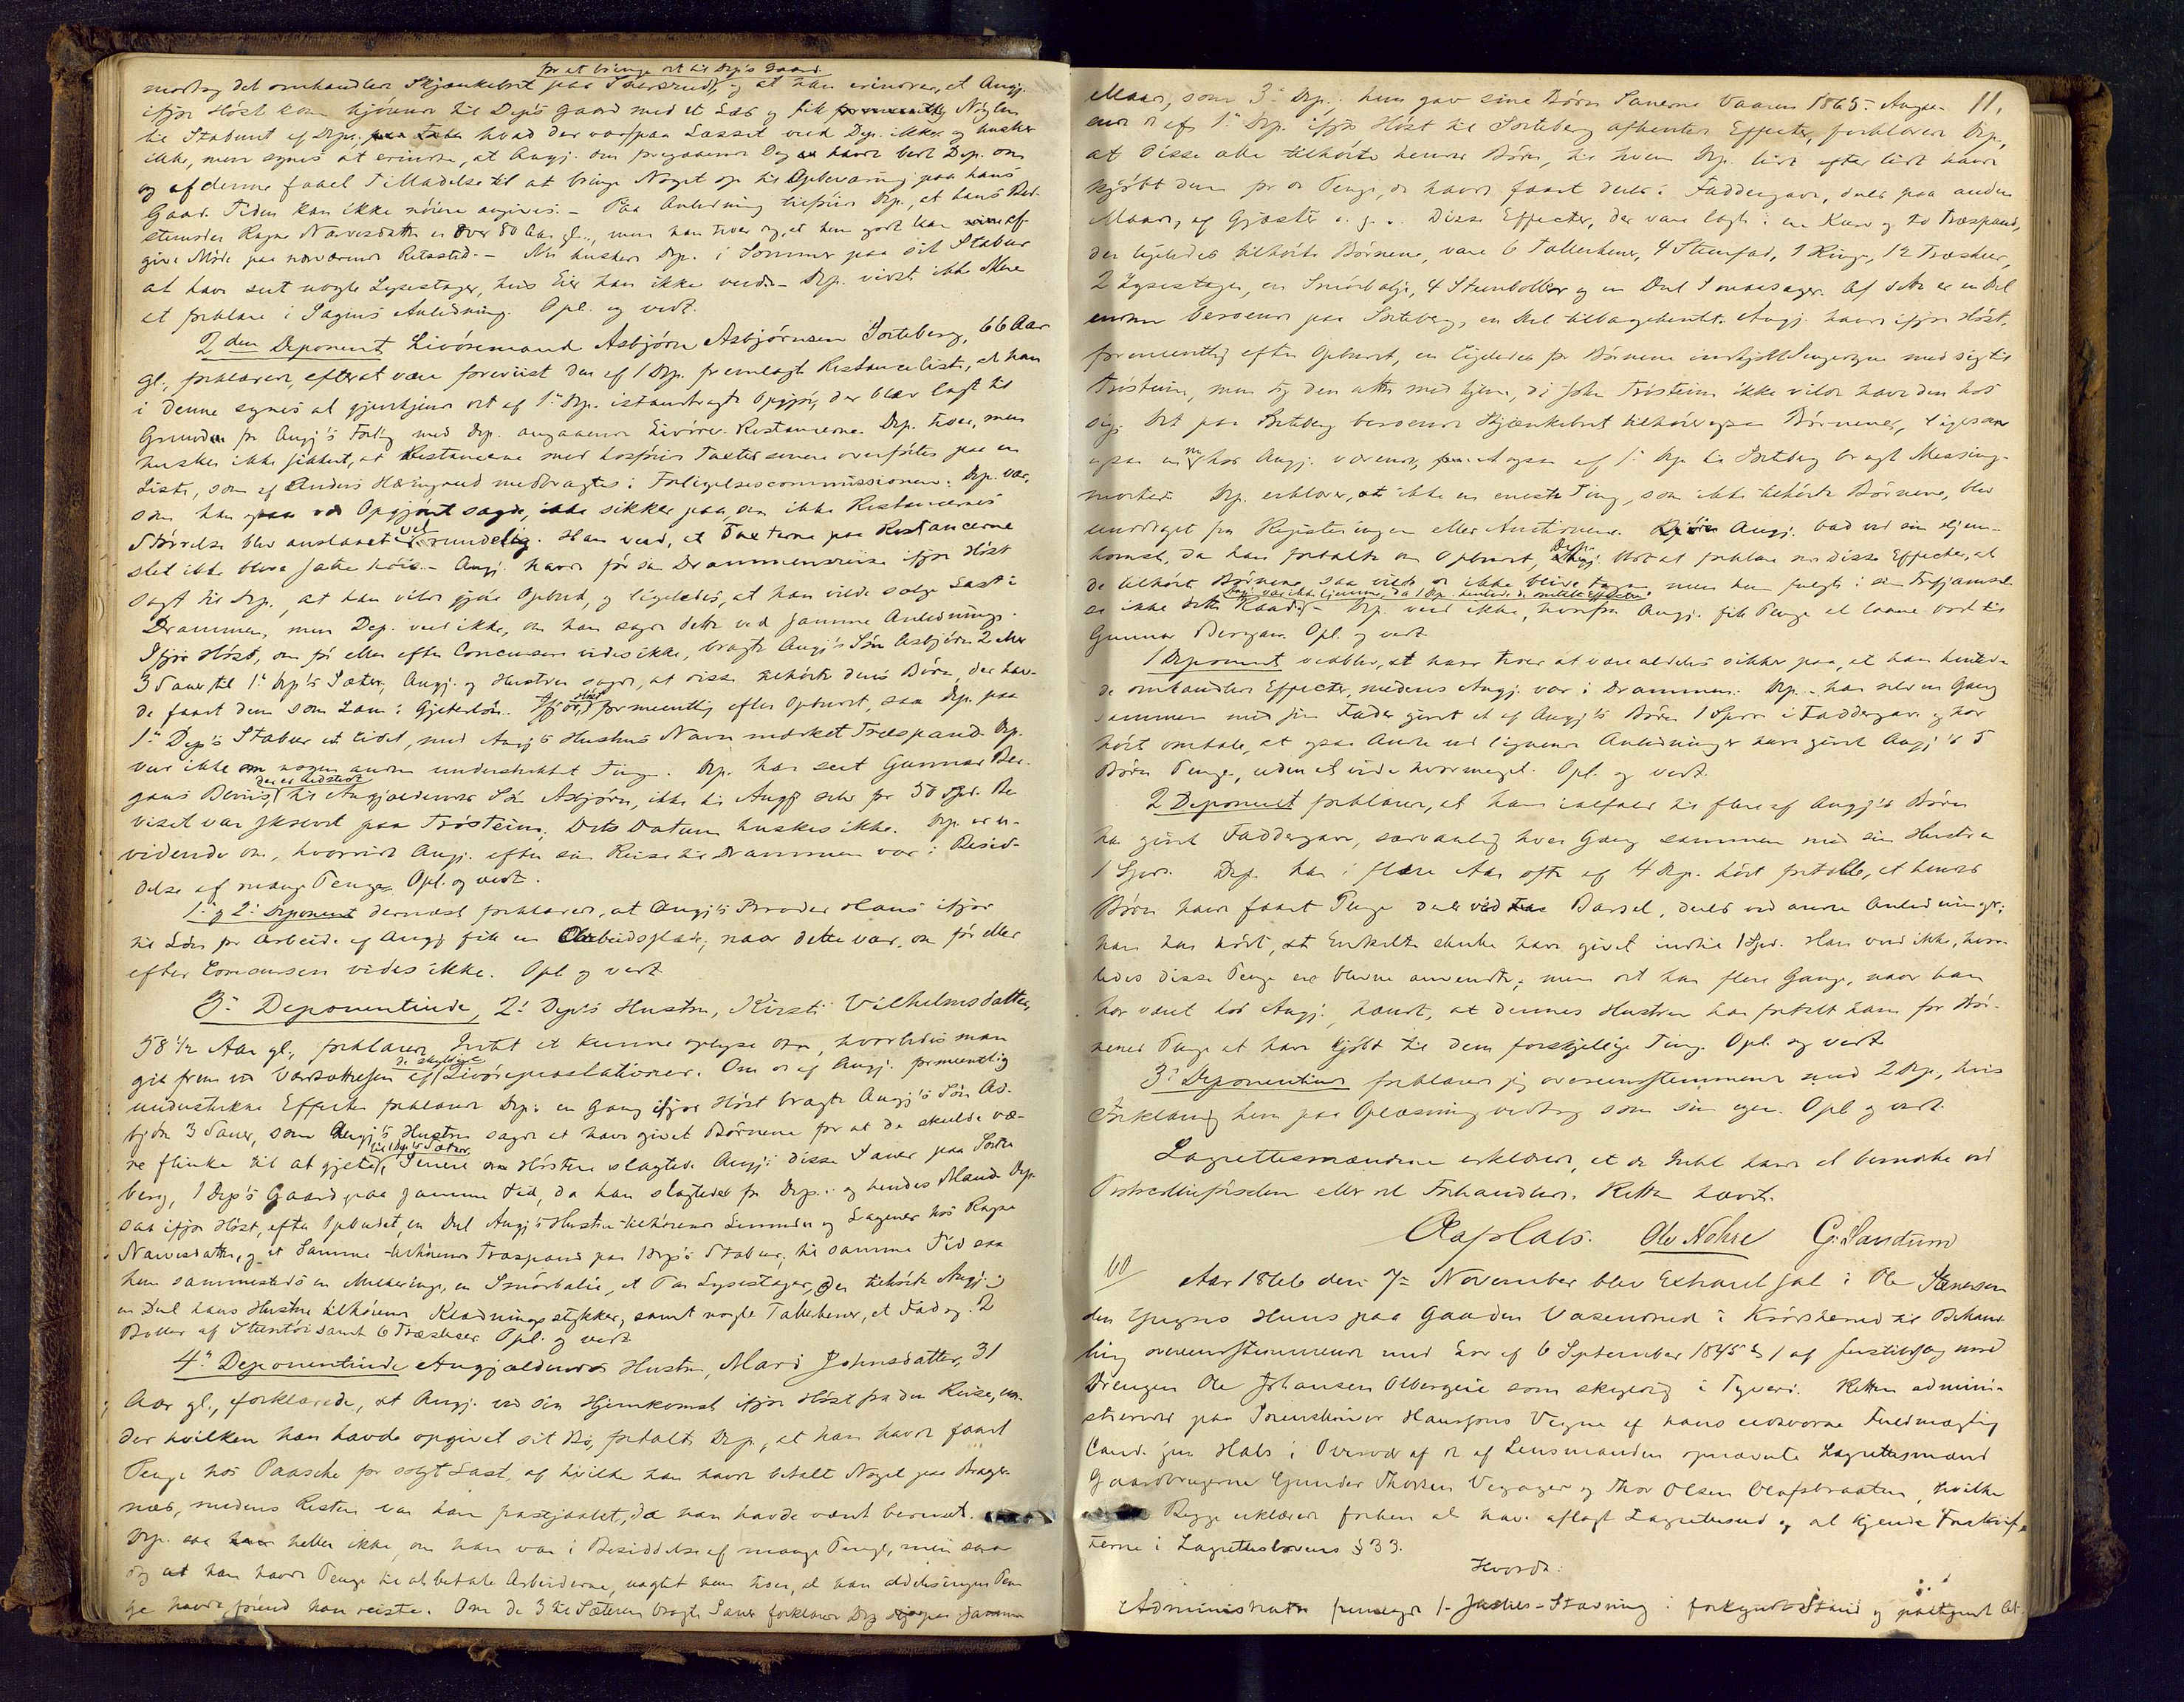 for at bringe det til Dep's Gaard
modtog det omhandlede Skjænkebret paa og at han erindrer, at Angj.
ifjor Høst kom kjørende til Dep's Gaard med et Læs og fik formeentlig Nøglen
til Staburet af Dep.; hvad der var paa Læsset veed Dep. ikke og husker
ikke, men synes at erindre, at Angj. den foregaaende Dag havde bedt Dep. om
og af denne faaet Tilladelse til at bringe Noget op til Opbevaring paa hans
Gaard. Tiden kan ikke nøiere angives. – Paa Anledning tilføier Dep., at hans
Ragne Narvesdatter er over 80 Aar gl., men han troer dog, at hun godt kan af-
give Møde paa nærværende Retssted. – Nu husker Dep. i Sommer paa sit Stabur
at have seet nogle Lysestager, hvis Eier han ikke veed. – Dep. vidste ikke Mere
at forklare i Sagens Anledning. Opl. og vedt.
2den Deponent Livøremand Asbjørn Asbjørnsen Sorteberg, 66 Aar
gl., forklarer, efterat være foreviist den af 1 Dep. fremlagte Restanceliste, at han
i denne synes at gjenkjende det af 1ste Dep. istandbragte Opgjør, der blev lagt til
Grunden for Angj's Forlig med Dep. angaaende Livøres Restancerne. Dep. troer, men
husker ikke sikkert, at Restancerne med hosføiede Taxter senere overførtes paa en
Liste, som af Anders Hæengrud medbragtes i Forligelsescommissionen. Dep. var,
som han ogsaa ved Opgjøret sagde, ikke sikker paa, om ikke Restancernes
Størrelse blev anslaaet vel rundelig. Han veed, at Taxterne paa Restancerne
slet ikke bleve satte høie. – Angj. havde før sin Drammensreise ifjor Høst
sagt til Dep., at han vilde gjøre Opbud, og ligeledes, at han vilde sælge Last i
Drammen, men Dep. veed ikke, om han sagde dette ved samme Anledning.
Ifjor Høst, om før eller efter Concursen vides ikke, bragte Angj's Søn Asbjørn 2 eller
3 Sauer til 1ste Dep's Sæter, Angj. og Hustru sagde, at disse tilhørte deres Børn, der hav-
de faaet dem som Lam i Gjeterløn. Ifjor Høst, formeentlig efter Opbudet, saa Dep. paa
1ste Dep's Stabur et lidet, med Angj's Hustrus Navn mærket Træspand. Dep.
veed ikke om nogen anden understukket Ting. Dep. har seet Gunnar Ber-
gans Beviis, der er udstedt til Angjældendes Søn Asbjørn, ikke til Angj. selv for 50 Spd. Be-
viset var skrevet paa Trøsteim. Dets Datum huskes ikke. Dep. er u-
vidende om, hvorvidt Angj. efter sin Reise til Drammen var i Besid-
delse af mange Penge. Opl. og vedt.
1ste og 2den Deponent dernæst forklarer, at Angj's Broder Hans ifjor
til Løn for Arbeide af Angj. fik en Arbeidsslæde; naar dette var, om før eller
efter Concursen vides ikke. Opl. og vedt.
3die Deponentinde, 2den Dep's Hustru, Kirsti Vilhelmsdatter,
58 1/2 Aar gl., forklarer Intet at kunne oplyse om, hvorledes man
gik frem ved Værdsættelsen af de skyldige Livøresprestationer. Om de af Angj. formeentlig
understukne Effecter forklarer Dep.: en Gang ifjor Høst bragte Angj's Søn As-
bjørn 3 Sauer, som Angj's Hustru sagde at have givet Børnene for at de skulde væ-
re flinke til at gjete, til 1 Dep's Sæter. Senere om Høsten slagtede Angj. disse Sauer paa Sorte-
berg, 1 Dep's Gaard, paa samme Tid, da han slagtede for Dep. og hendes Mand. Dep.
saa ifjor Høst, efter Opbudet, en Deel Angj's Hustru tilhørende og Lagener hos Ragne
Narvesdatter, og et Samme tilhørende Træspand paa 1 Dep's Stabur; til samme Tid saa
hun sammesteds en Melkeringe, en Smørbalie, et Par Lysestager, der tilhørte Angj. og
en Deel hans Hustru tilhørende Klædningsstykker, samt nogle Tallerkener, et Fad og 2
Boller af Steentøi samt 6 Træskeer. Opl. og vedt.
4de Deponentinde Angjældendes Hustru, Mari Johnsdatter, 31
Aar gl., forklarede, at Angj. ved sin Hjemkomst ifjor Høst fra den Reise, un-
der hvilken han havde opgivet sit Bo, fortalte Dep., at han havde faaet
Penge hos Paasche for solgt Last, af hvilke han havde betalt Noget paa Brager-
næs, medens Resten var ham frastjaalet, da han havde været beruset.
Dep. saa heller ikke, om han var i Besiddelse af mange Penge, men saa
dog at han havde Penge til at betale Arbeiderne, uagtet hun troer, at han aldeles ingen Pen-
ge havde, førend han reiste. Om de 3 til Sæteren bragte Sauer forklarer Dep. samme
11.
Maade, som 3die Dep.; hun gav sine Børn Sauerne Vaaren 1865. Angaa-
ende de af 1ste Dep. ifjor Høst til Sorteberg afhentede Effecter, forklarer Dep.,
at disse alle tilhørte hendes Børn, til hvem Dep. lidt efter lidt havde
kjøbt dem for de Penge, de havde faaet deels i Faddergave, deels paa anden
Maade, af Gjæster o. s. v. Disse Effecter, der vare lagt i en Kurv og to Træspand,
der ligeledes tilhørte Børnene, vare 6 Tallerkener, 4 Steenfad, 1 Ringe, 12 Træskeer,
2 Lysestager, en Smørbalje, 4 Steenboller og en Deel Smaasager. Af dette er en Deel
endnu beroende paa Sorteberg, en Deel tilbagehentet. Angj. havde ifjor Høst,
formeentlig efter Opbudet, en ligeledes for Børnene indkjøbt med sig til
Trøsteim, men tog den atter med hjem, da John Trøsteim ikke vilde have den hos
sig. Det paa Sorteberg beroende Skjænkebret tilhører ogsaa Børnene, ligesom
ogsaa en nu hos Angj. værende, ogsaa af 1ste Dep. til Sorteberg bragt Messing-
morter. Dep. erklærer, at ikke en eneste Ting, som ikke tilhørte Børnene, blev
unddraget fra Registreringen eller Auctionen. Angj. bad ved sin Hjem-
komst, da han fortalte om Opbudet, Dep. blot at forklare om disse Effecter, at
de tilhørte Børnene, saa vilde de ikke blive tagne, men hun fulgte i sin
Angj. var ikke hjemme, da 1 Dep. hentede de omtalte Effecter.
se ikke dette Raad. – Dep. veed ikke, hvorfra Angj. fik Penge at laane bort til
Gunnar Bergan. Opl. og vedt.
1 Deponent vedblev, at han troer at være aldeles sikker paa, at han hentede
de omhandlede Effecter, medens Angj. var i Drammen. Dep. har selv en Gang
sammen med sin Fader givet et af Angj's Børn 1 Spd. i Faddergave og har
hørt omtale, at ogsaa Andre ved lignende Anledninger have givet Angj's 5
Børn Penge, uden at vide hvormeget. Opl. og vedt.
2 Deponent forklarer, at han ialfald til flere af Angj's Børn
har givet Faddergave, sædvanlig hver Gang sammen med sin Hustru
1 Spd. Dep. har i flere Aar ofte af 4 Dep. hørt fortalt, at hendes
Børn have faaet Penge deels ved Barsel, deels ved andre Anledninger;
han har hørt, at Enkelte skulle have givet indtil 1 Spd. Han veed ikke, hvor-
ledes disse Penge ere blevne anvendte; men det har flere Gange, naar han
har været hos Angj., hændt, at dennes Hustru har fortalt ham for Bør-
nenes Penge at have kjøbt til dem forskjellige Ting. Opl. og vedt.
3die Deponentinde forklarer sig overeensstemmende med 2 Dep., hvis
Forklaring hun paa Oplæsning vedtog som sin egen. Opl. og vedt.
Lagrettesmændene erklærer, at de Intet have at bemærke ved
Protocollførselen eller det Forhandlede. Retten hævet.
Aaplats. Ole Nohre G. Sandum
60/ Aar 1866 den 7de November blev Extraret sat i Ole Stenersen
den Yngres Huus paa Gaarden Vasendrud i Krødsherred til Behand-
ling overeensstemmende med Lov af 6 September 1845 § 1 af Justitssag mod
Drengen Ole Johansen Olbergeie som skyldig i Tyveri. Retten admini-
streredes paa Sorenskriver Hansons Vegne af hans edsvorne Fuldmægtig
Cand. jur. Hals i Overvær af de af Lensmanden opnævnte Lagrettesmænd
Gaardbrugerne Gunder Thorsen og Thor Olsen Olafsbraaten, hvilke
Begge erklærede forhen at have aflagt Lagretteseed og at kjende Forskrif-
terne i Lagretteslovens § 33.
Hvorda:
Administrator fremlagde 1. Stævning i forkyndt Stand og paategnet